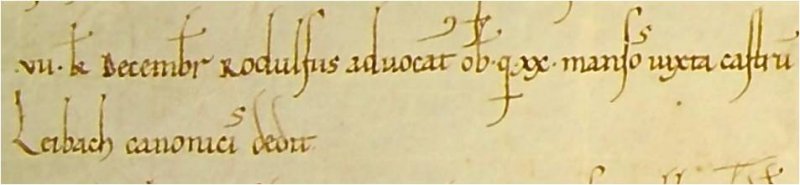 vii. kł Decembr Rodulfus advocat ob. q. xx. mansos iuxta castrū
Leibach canonicis dedit